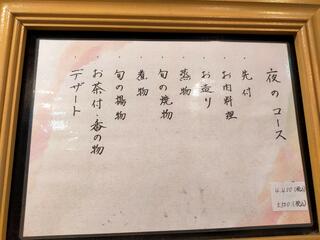 夜のコース
・先付
・お肉料理
・お造り
・蒸物
・旬の焼物
・煮物
・旬の揚物
・お茶付・香の物
・デザート
4,400(税込)